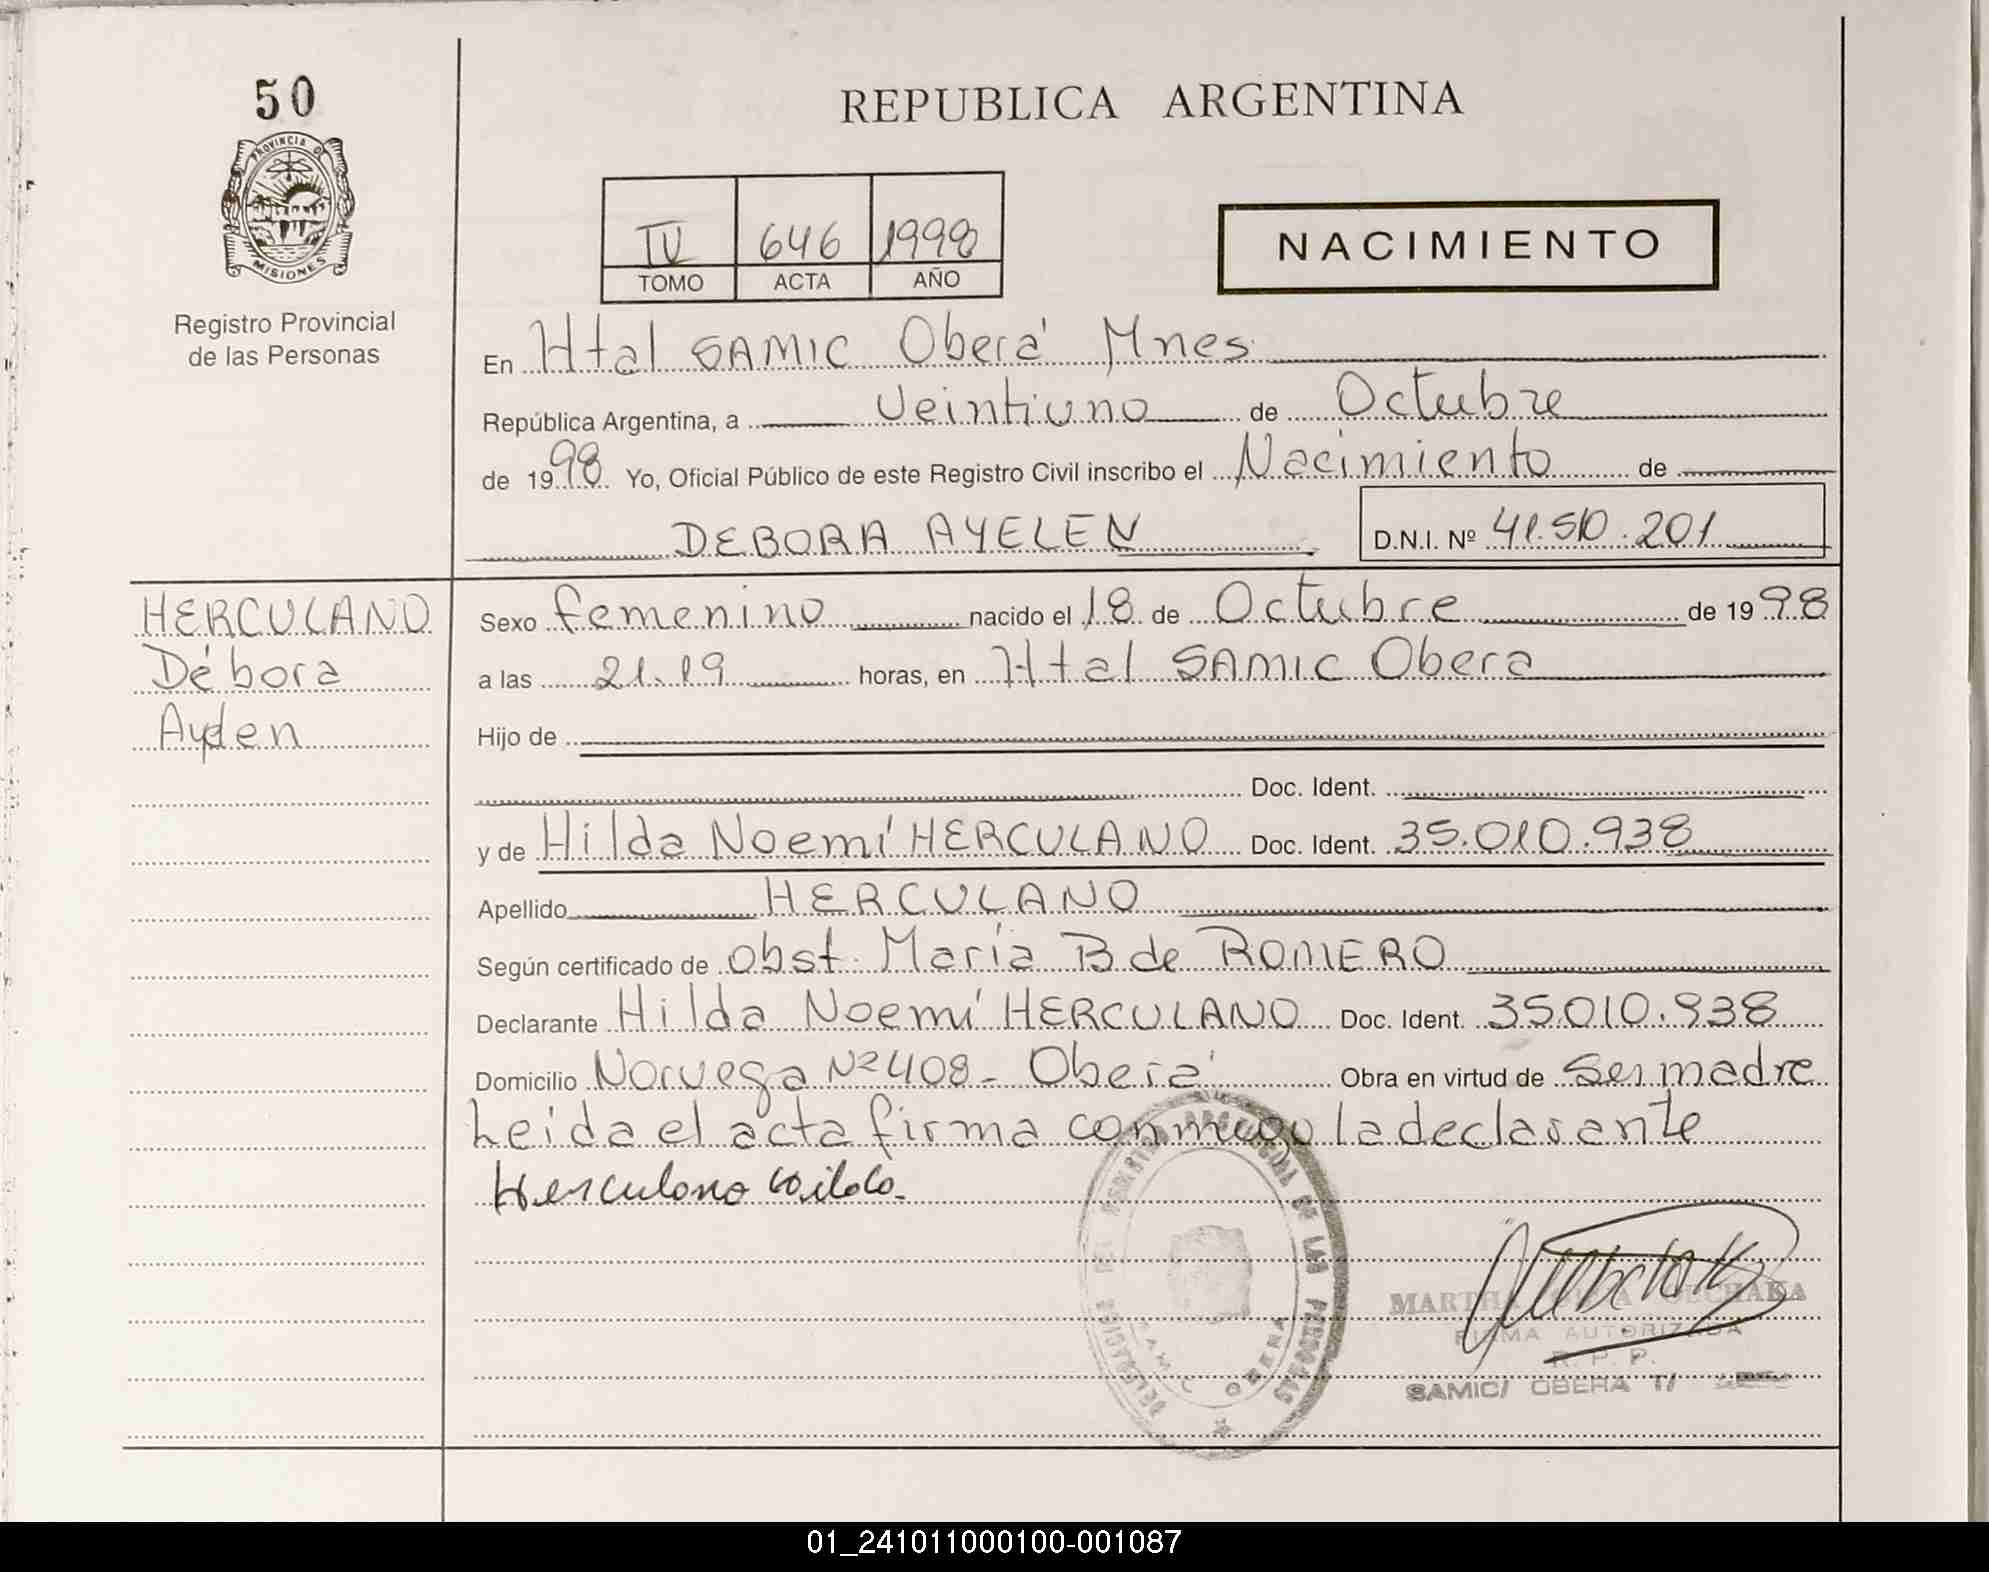 50
PROVINCIA DE
MISIONES
Registro Provincial
de las Personas
REPUBLICA ARGENTINA
IV 646 1998
TOMO ACTA AÑO
NACIMIENTO
En Htal SAMIC Oberá Mnes
República Argentina, a Veintiuno de Octubre
de 1998 Yo, Oficial Público de este Registro Civil inscribo el Nacimiento de
DEBORA AYELEN D.N.I. Nº 41.510.201
HERCULANO
Débora
Ayelen
Sexo femenino nacido el 18 de Octubre de 1998
a las 21.19 horas, en Htal SAMIC Obera
Hijo de
Doc. Ident.
y de Hilda Noemí HERCULANO Doc. Ident. 35.010.938
Apellido HERCULANO
Según certificado de Obst. María B de ROMERO
Declarante Hilda Noemí HERCULANO Doc. Ident. 35.010.938
Domicilio Noruega Nº 408 - Oberá Obra en virtud de Ser madre
Leida el acta firma conmigo la declarante
Herculano Hilda.
DE LAS PERSONAS
SAMIC OBERA
MARTHA
FIRMA AUTORIZADA
R. P. P.
SAMIC/ OBERA T/
01_241011000100-001087